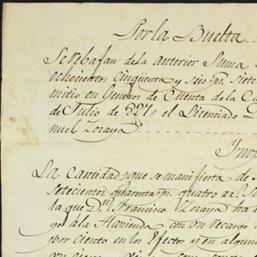 Por la Buelta
Se rebajan de la anterior Suma
ochocientos Cinquenta y seis ps. siete
mitio en Generos de Cuenta de la
de Julio de 827 el Licenciado
nuel Zozaya
La Cantidad que se manifiesta de
Setecientos quarenta ps. quatro
la que Dn. Francisco Zozaya ha
go á la Hacienda con un recargo
por ciento en los Efectos y en algun